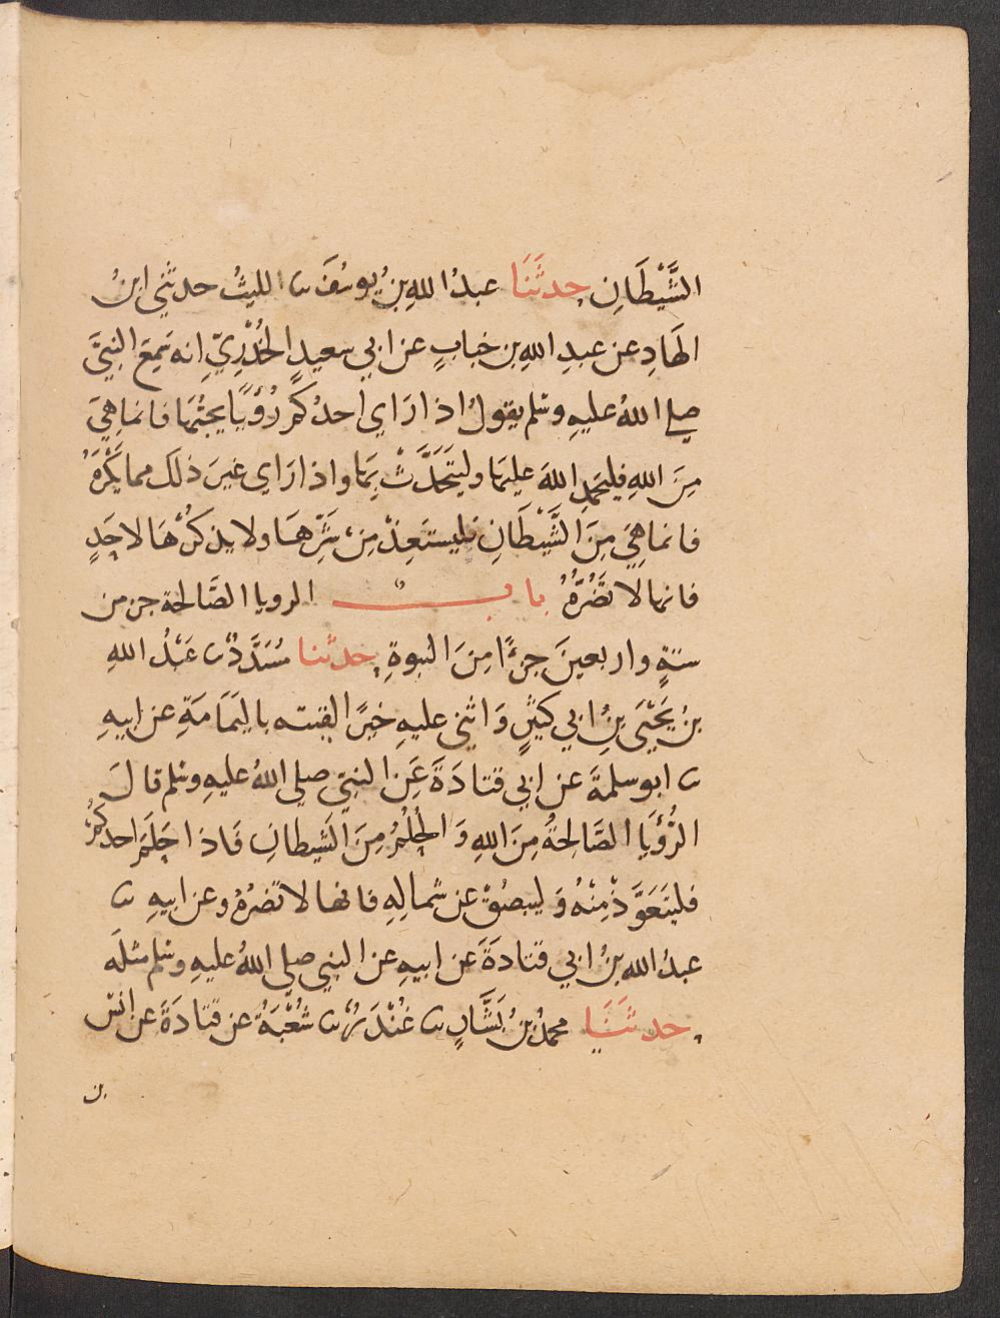 الشَّيْطَانِ حدثَنَا عبدُ اللهِ بنُ يوسُفَ ثنا الليثُ حدثني ابنُ
الهَادِ عن عبدِ اللهِ بن خبابٍ عن ابي سعيدٍ الخُدْرِيِّ انه سَمِعَ النبيَّ
صلى اللهُ عليهِ وسلم يقولُ اذا رَاى احدُكم رُؤْيَا يحبُّهَا فانما هِيَ
مِنَ اللهِ فليحمِدِ اللهَ عليهَا وليتَحَدَّثْ بِهَا واذا رَاى غيرَ ذلك مما يَكْرَهُ
فانما هِيَ مِنَ الشَّيْطَانِ فليستَعِذْ مِنْ شَرِّهَا ولا يذكرْهَا لاحَدٍ
فانها لا تَضُرُّهُ باب الرويا الصَّالحة جزء من
ستةٍ واربعينَ جزءًا مِنَ النبوةِ حدثنا مُسَدَّدٌ ثنا عَبْدُ اللهِ
بنُ يَحْيَى بنِ ابي كثيرٍ وَاثنى عليهِ خيرًا لقيته باليَمَامَةِ عن ابيهِ
ثنا ابو سلمةَ عن ابي قتادَةَ عَنِ النبيِّ صلى اللهُ عليهِ وسلم قالَ
الرُّؤْيَا الصَّالِحَةُ مِنَ اللهِ وَالحُلْمُ مِنَ الشَيطانِ فَاذا حَلَمَ احدكمْ
فليتَعَوَّذْ مِنْهُ وَليبصُقْ عن شمالِهِ فانها لا تضرُهُ وعن ابيهِ ثنا
عبدُ اللهِ بنُ ابي قتادَةَ عن ابيهِ عن النبي صلى اللهُ عليهِ وسلم مثلَه
حدثَنَا محمدُ بنُ بَشَّارٍ ثنا غُنْدَرٌ ثنا شُعْبَةُ عن قتادَةَ عن انس
بن